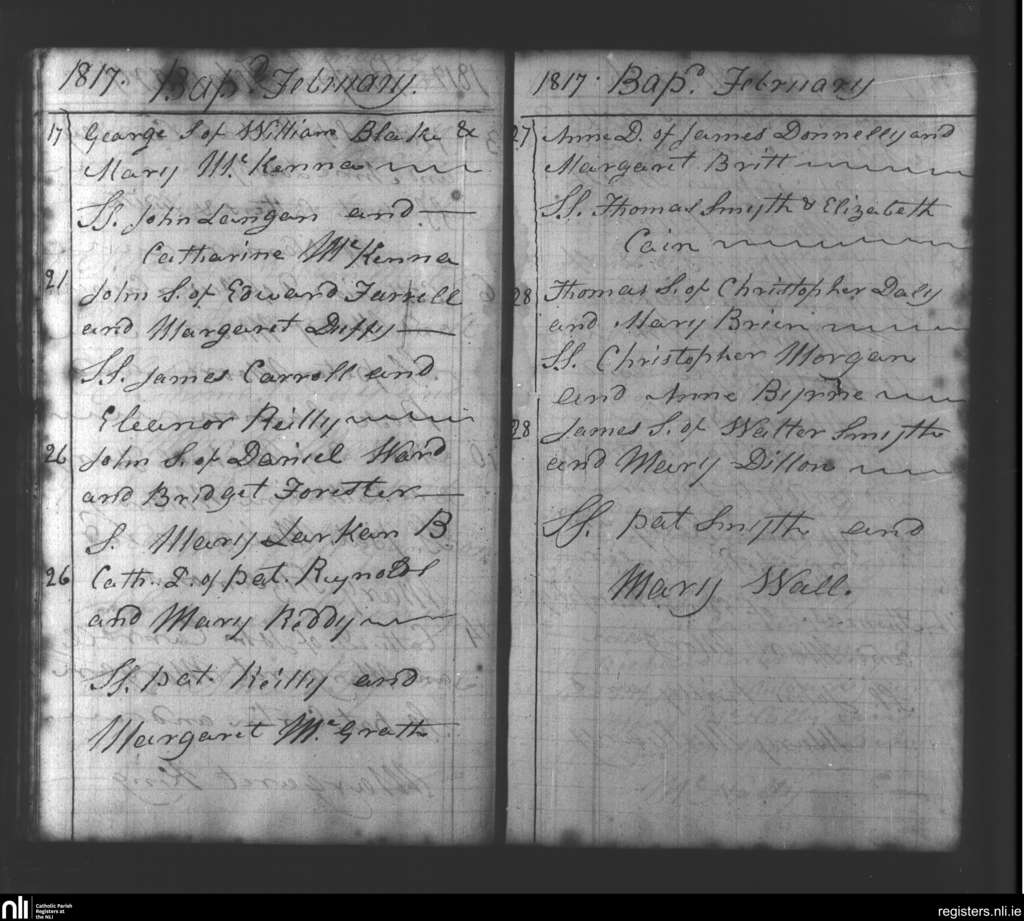 1817. Bapd. February.
17 George S. of William Blake &
Mary McKenna
SS. John Langan and
Catharine McKenna
21 John S. of Edward Farrell
and Margaret Duffy
SS. James Carroll and
Eleanor Reilly
26 John S. of Daniel Ward
and Bridget Forester
S. Mary Larkan B
26 Cath. D. of pat. Reynolds
and Mary Reddy
SS. pat Reilly and
Margaret Mc.Grath
1817. Bapd. February
27 Anne D. of James Donnelly and
Margaret Britt
SS. Thomas Smyth & Elizabeth
Cain
28 Thomas S. of Christopher Daly
and Mary Brien
SS. Christopher Morgan
and Anne Byrne
28 James S. of Walter Smyth
and Mary Dillon
SS. pat Smyth and
Mary Wall.
nli Catholic Parish
Registers at
the NLI
registers.nli.ie